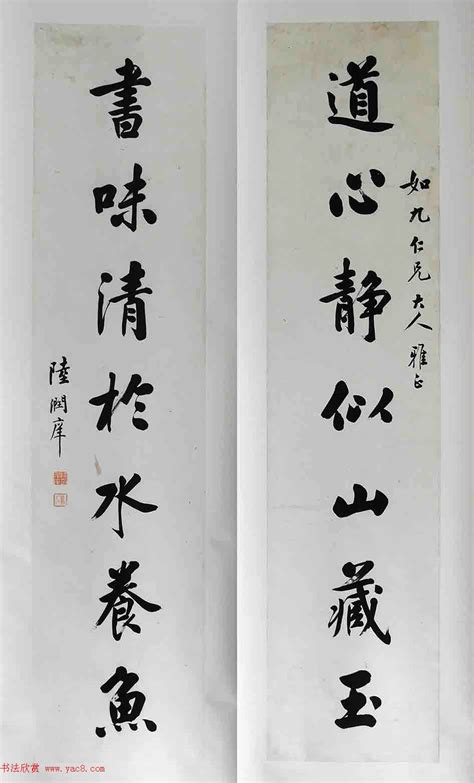 道心静似山藏玉
如九仁兄大人雅正
書味清於水養魚
陸潤庠
书法欣赏 www.yac8.com